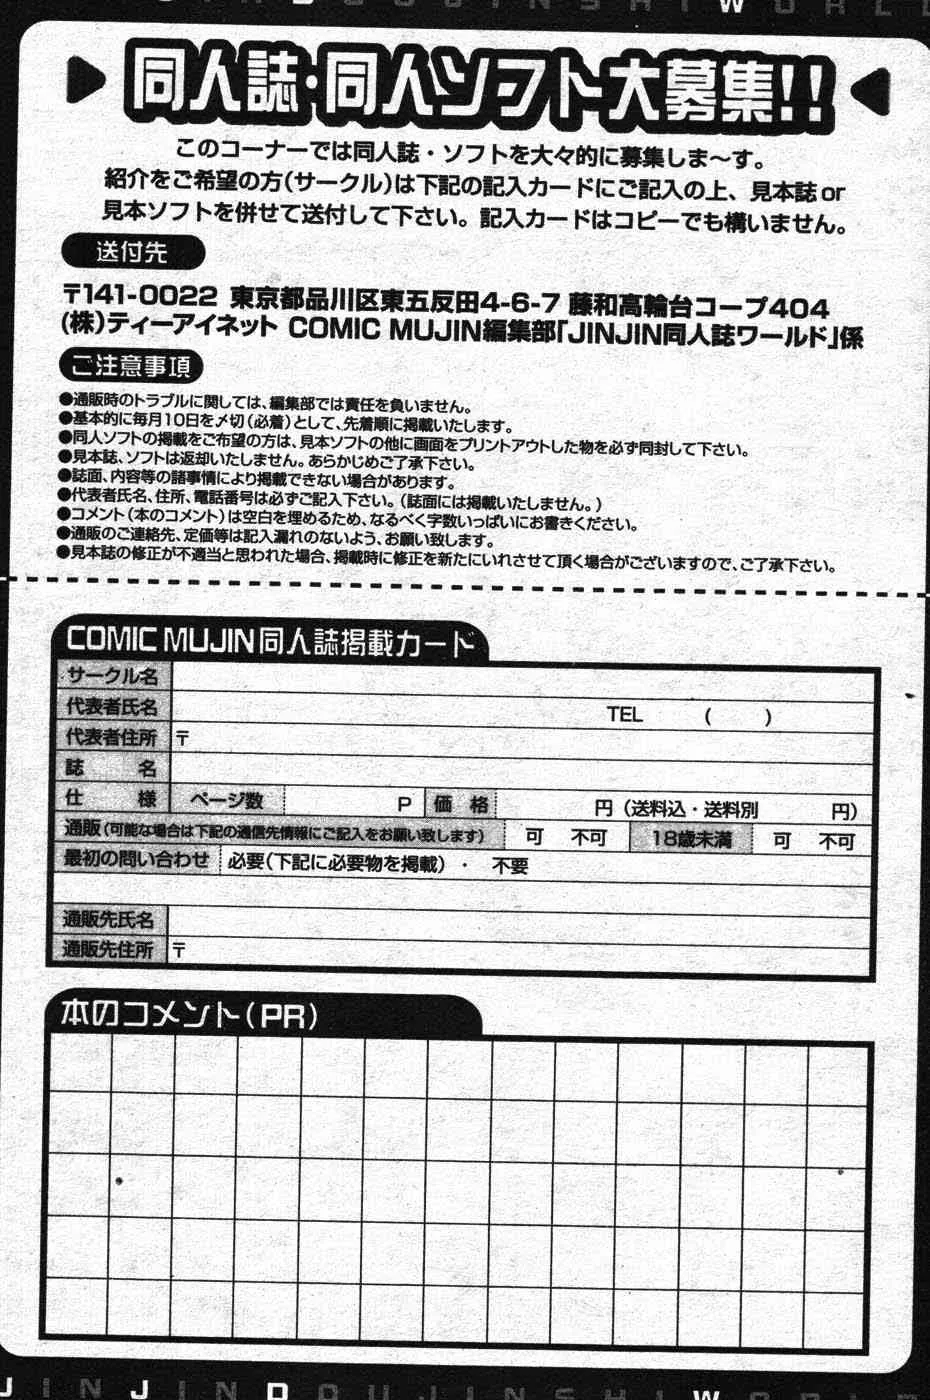 DOUJINSHI WORLD
同人誌・同人ソフト大募集!!
このコーナーでは同人誌・ソフトを大々的に募集しま〜す。
紹介をご希望の方(サークル)は下記の記入カードにご記入の上、見本誌or
見本ソフトを併せて送付して下さい。記入カードはコピーでも構いません。
送付先
〒141-0022 東京都品川区東五反田4-6-7 藤和高輪台コープ404
(株)ティーアイネット COMIC MUJIN編集部「JINJIN同人誌ワールド」係
ご注意事項
●通販時のトラブルに関しては、編集部では責任を負いません。
●基本的に毎月10日を〆切(必着)として、先着順に掲載いたします。
●同人ソフトの掲載をご希望の方は、見本ソフトの他に画面をプリントアウトした物を必ず同封して下さい。
●見本誌、ソフトは返却いたしません。あらかじめご了承下さい。
●誌面、内容等の諸事情により掲載できない場合があります。
●代表者氏名、住所、電話番号は必ずご記入下さい。(誌面には掲載いたしません。)
●コメント(本のコメント)は空白を埋めるため、なるべく字数いっぱいにお書きください。
●通販のご連絡先、定価等は記入漏れのないよう、お願い致します。
●見本誌の修正が不適当と思われた場合、掲載時に修正を新たにいれさせて頂く場合がございますので、ご了承下さい。
COMIC MUJIN同人誌掲載カード
サークル名
代表者氏名 TEL ( )
代表者住所 〒
誌 名
仕 様 ページ数 P 価 格 円(送料込・送料別 円)
通販(可能な場合は下記の通信先情報にご記入をお願い致します) 可 不可 18歳未満 可 不可
最初の問い合わせ 必要(下記に必要物を掲載) ・ 不要
通販先氏名
通販先住所 〒
本のコメント(PR)
JINJIN DOUJINSHI WORLD